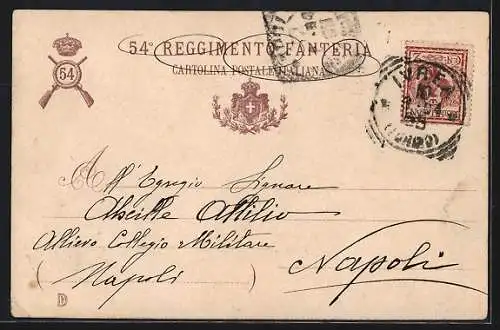 54° REGGIMENTO FANTERIA
CARTOLINA POSTALE ITALIANA
54
IVREA
(TORINO)
All'Egregio Signore
Attilio
Allievo Collegio Militare
(Napoli)
Napoli
D